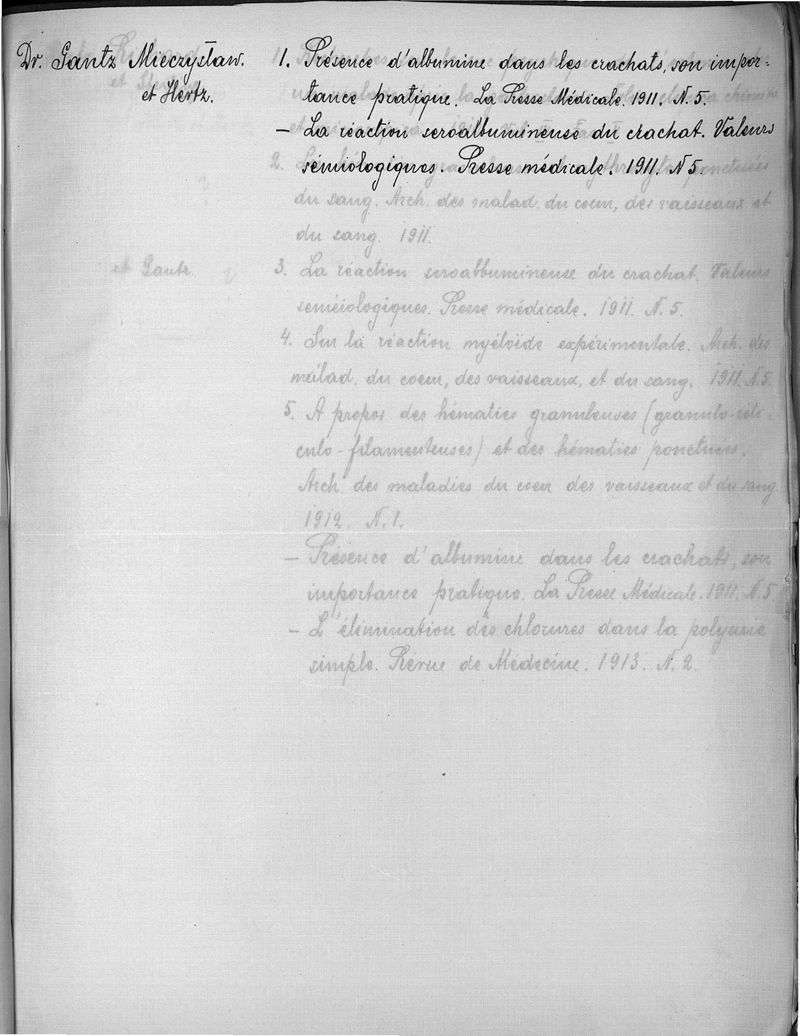 Dr. Gantz Mieczysław.
et Hertz.
1. Présence d'albumine dans les crachats, son impor-
tance pratique. La Presse Médicale. 1911. N. 5.
— La réaction seroalbumineuse du crachat. Valeurs
sémiologiques. Presse médicale. 1911. N 5.
2.
ponctuées
du sang. Arch. des malad. du coeur, des vaisseaux et
du sang. 1911.
et Gantz.
3. La réaction seroalbumineuse du crachat. Valeurs
seméiologiques. Presse médicale. 1911. N. 5.
4. Sur la réaction myéloïde expérimentale. Arch. des
malad. du coeur, des vaisseaux, et du sang. 1911. N. 5.
5. A propos des hématies granuleuses (granulo-réti-
culo-filamenteuses) et des hématies ponctuées.
Arch. des maladies du coeur des vaisseaux et du sang
1912. N. 1.
— Présence d'albumine dans les crachats, son
importance pratique. La Presse Médicale. 1911. N. 5
— L'élimination des chlorures dans la polyurie
simple. Révue de Médecine. 1913. N. 2.